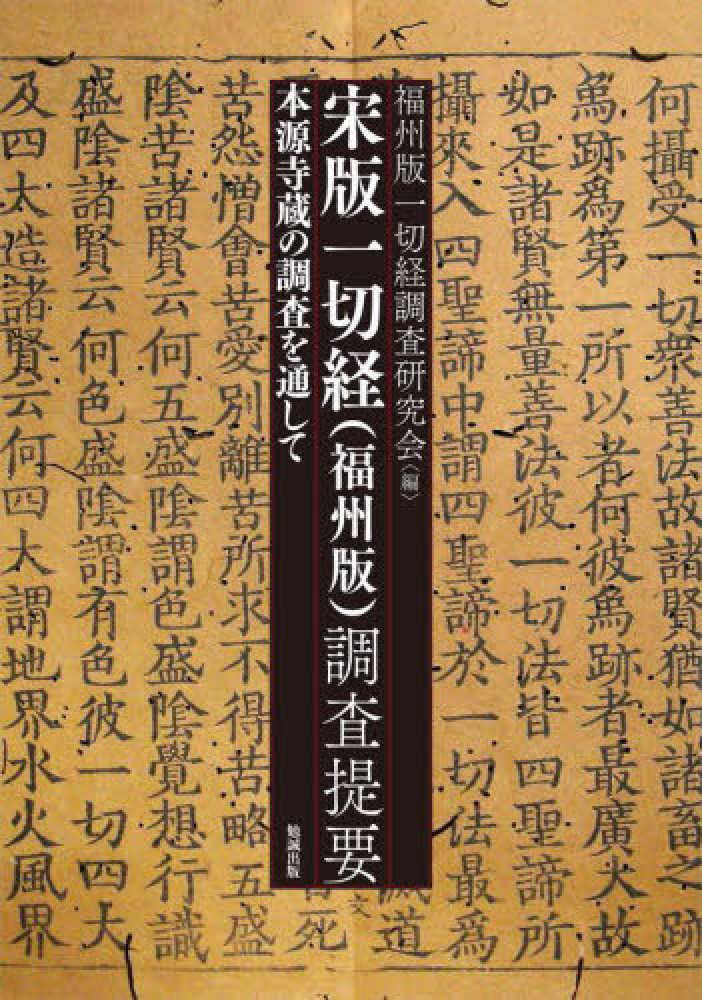 福州版一切経調査研究会〈編〉
宋版一切経(福州版)調査提要
本源寺蔵の調査を通して
勉誠出版
何攝受一切衆善法故諸賢猶如諸畜之跡
象跡爲第一所以者何彼象跡者最廣大故
如是諸賢無量善法彼一切法皆四聖諦所
攝來入四聖諦中謂四聖諦於一切法最爲
道
死
文
苦怨憎會苦愛別離苦所求不得苦略五盛
陰苦諸賢云何五盛陰謂色盛陰覺想行識
盛陰諸賢云何色盛陰謂有色彼一切四大
及四大造諸賢云何四大謂地界水火風界